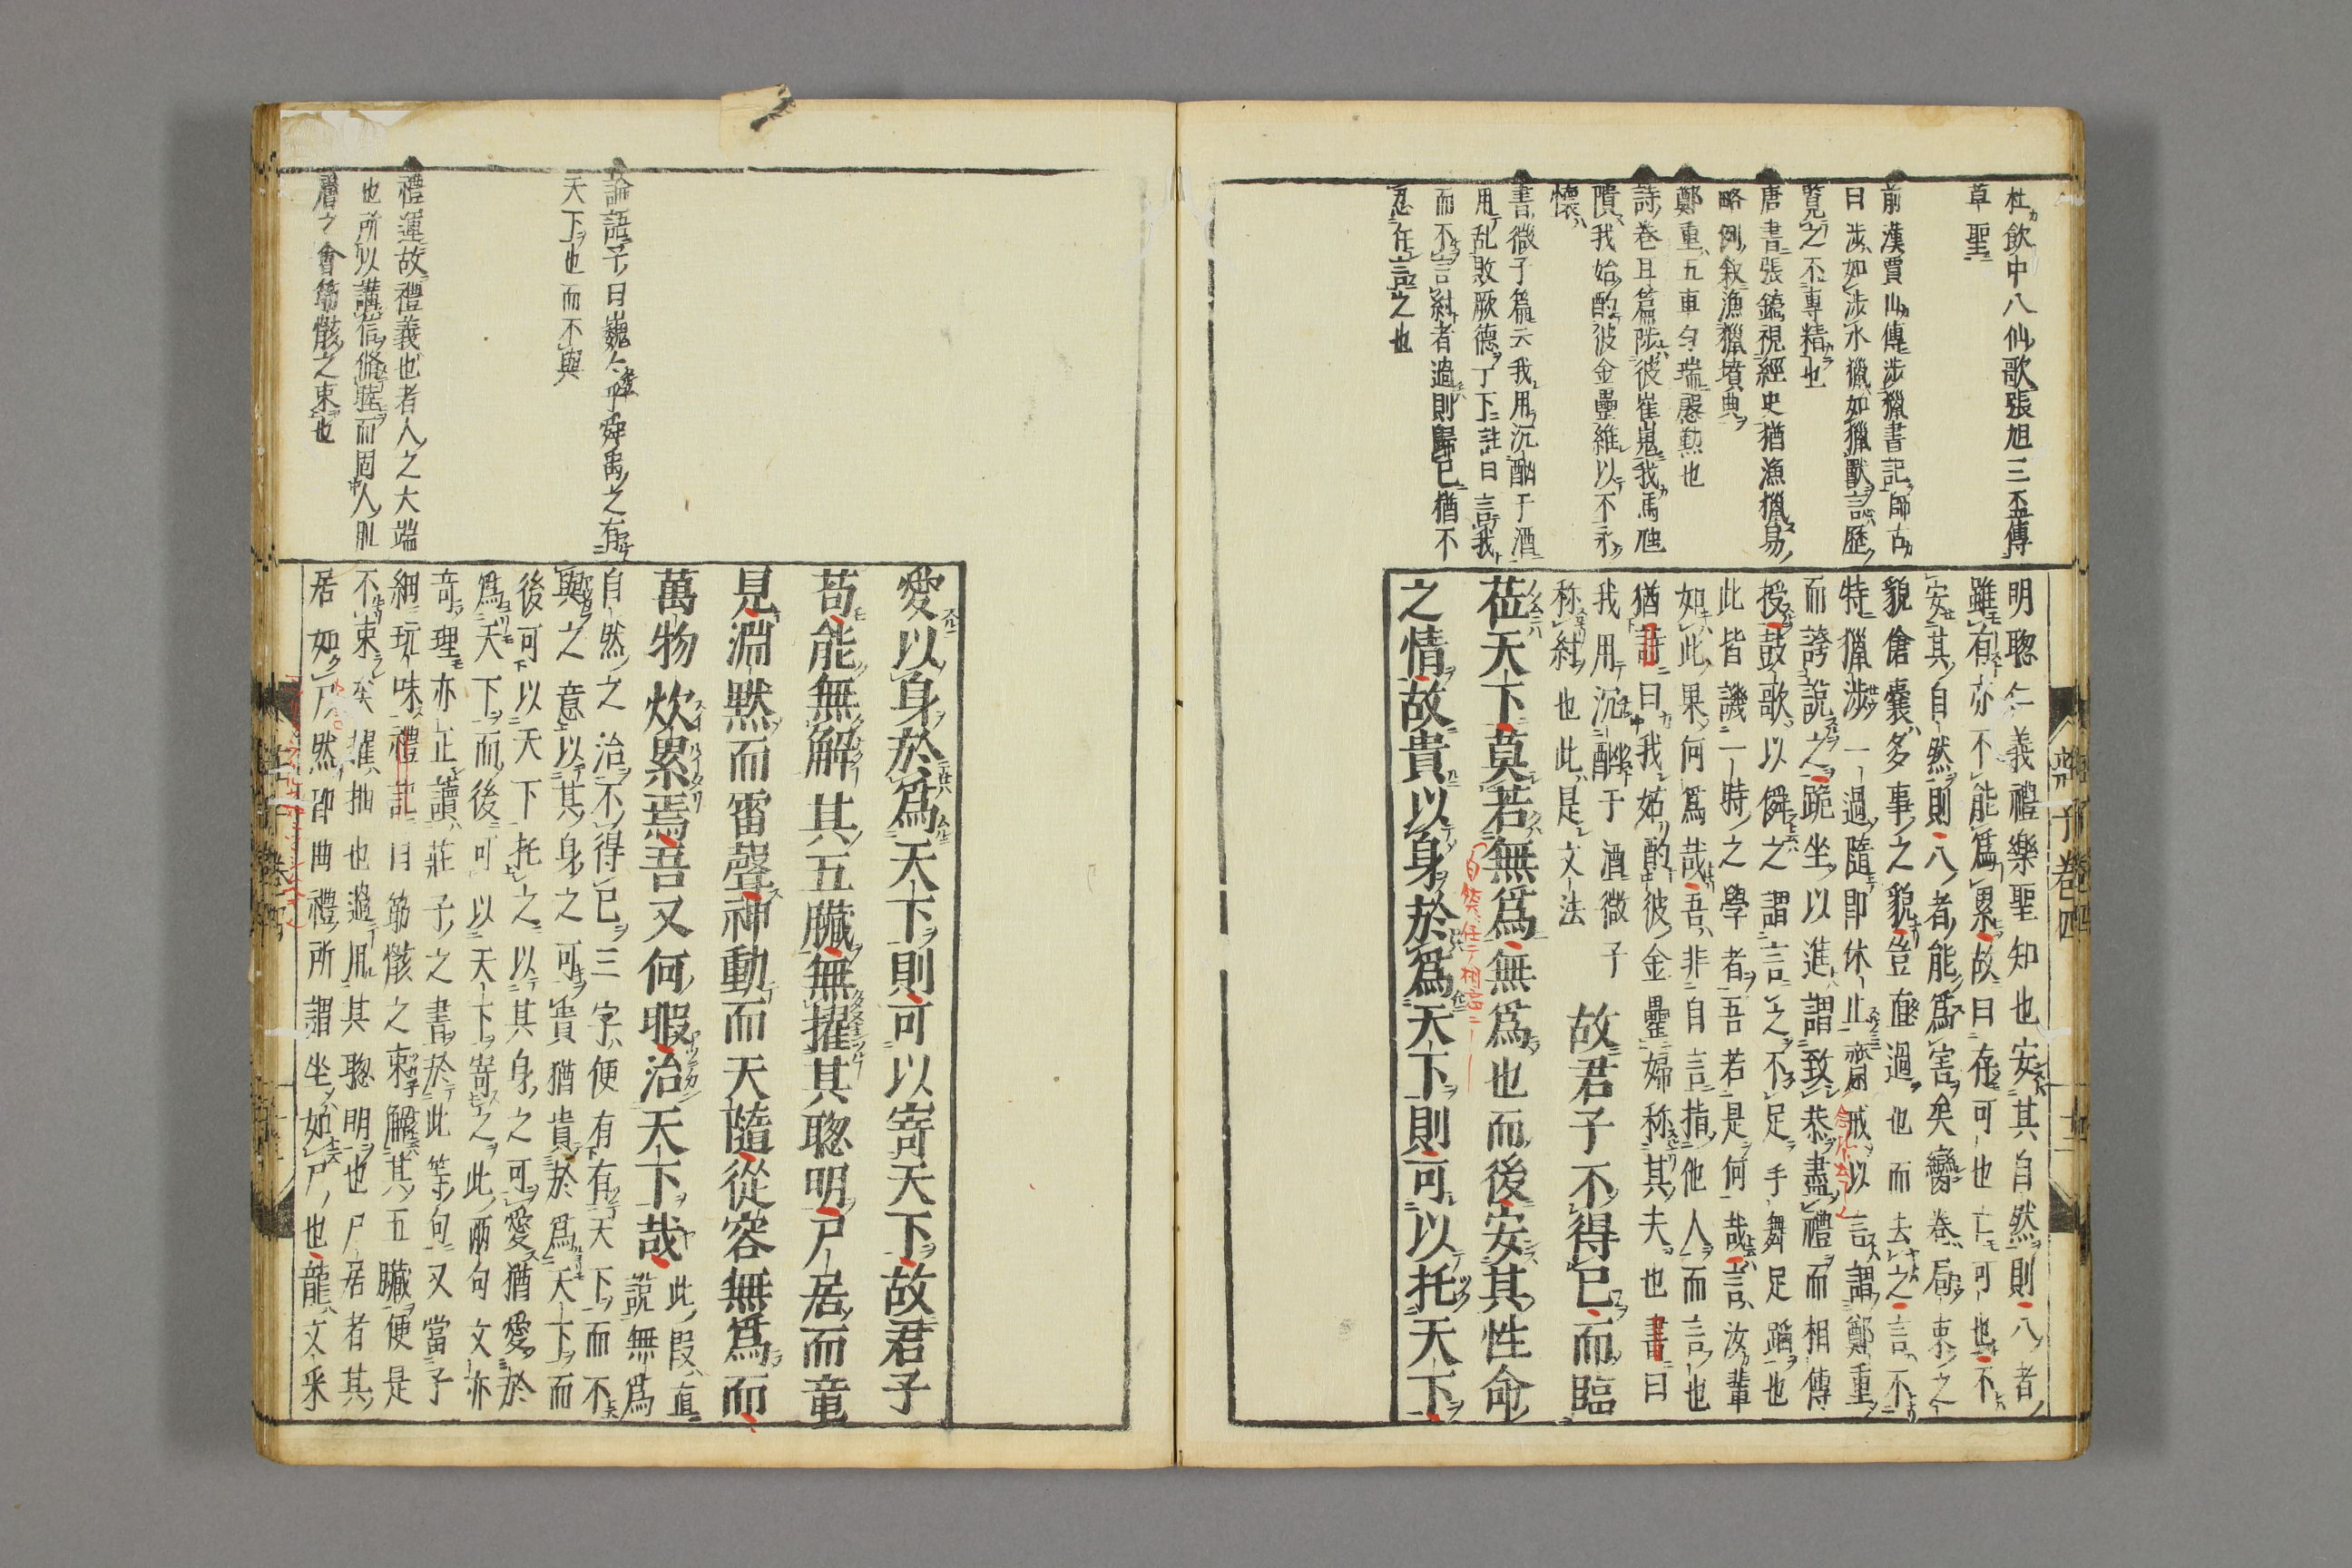 杜飲中八仙歌張旭三盃傳
草聖
前漢賈山傳涉獵書記師古
曰涉如涉水獵如獵獸言歷
覽之不專精也
唐書張鎬視經史猶漁獵易
略例敘漁獵墳典
鄭重五車勻瑞慇懃也
詩卷耳篇陟彼崔嵬我馬虺
隤我姑酌彼金罍維以不永
懷
書微子篇云我用沉酗于酒
用乱敗厥德丁下註曰言我
而不言紂者過則歸已猶不
忍斥言之也
明聡仁義禮樂聖知也安其自然則八者
雖有亦不能爲累故曰存可也亡可也不
安其自然則八者能爲害矣臠卷局束之
貌傖囊多事之貌豈直過也而去之言不
特獵涉一過隨即休止齊戒以言謂鄭重
而誇說之跪坐以進謂致恭盡禮而相傳
授鼓歌以儛之謂言之不足手舞足蹈也
此皆譏一時之學者吾若是何哉言汝輩
如此果何爲哉吾非自言指他人而言也
猶詩曰我姑酌彼金罍婦称其夫也書曰
我用沉酗于酒微子
称紂也此是文法
故君子不得已而臨
莅天下莫若無爲無爲也而後安其性命
之情故貴以身於爲天下則可以托天下
莊子卷四
愛以身於爲天下則可以寄天下故君子
苟能無解其五臟無擢其聡明尸居而竜
見淵默而雷聲神動而天隨從容無爲而
萬物炊累焉吾又何暇治天下哉
此段直
說無爲
自然之治不得已三字便有有天下而不
與之意以其身之可貴猶貴於爲天下而
後可以天下托之以其身之可愛猶愛於
爲天下而後可以天下寄之此兩句文亦
奇理亦正讀莊子之書於此等句又當子
細玩味禮記曰筋骸之束解其五臟便是
不束矣擢抽也過用其聡明也尸居者其
居如尸然即曲禮所謂坐如尸也龍文采
論語子曰巍々乎舜禹之有
天下也而不與
禮運故禮義也者人之大端
也所以講信脩睦而固人肌
膚之會筋骸之束也